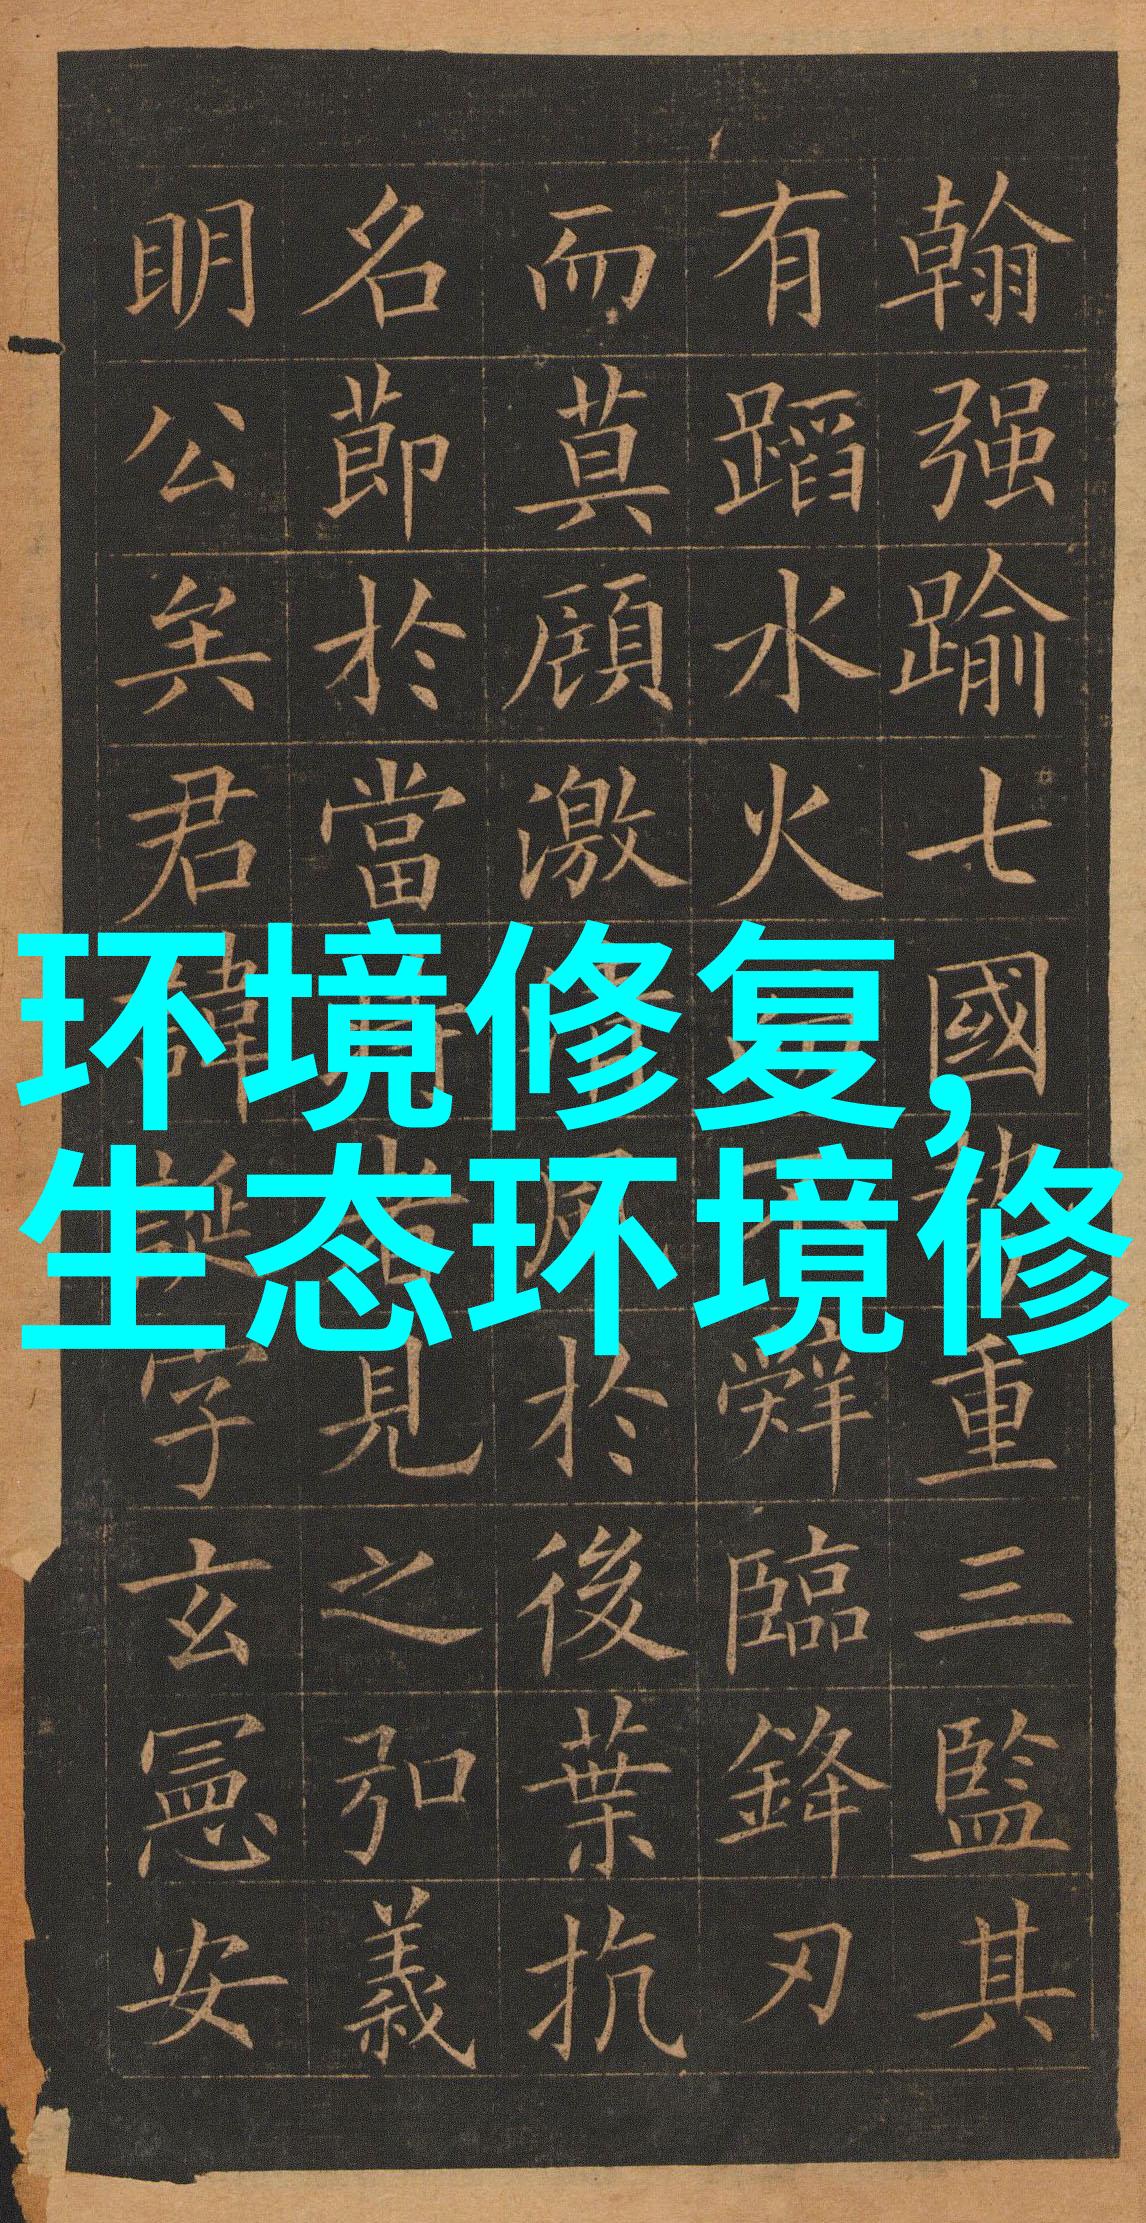 环境修复,
生态环境修
翰强踰七國重三監其
有蹈水火辭臨鋒刃
而莫顧激風於後葉抗
名節於當者見之弘義
明公矣君諱誕字玄憲安